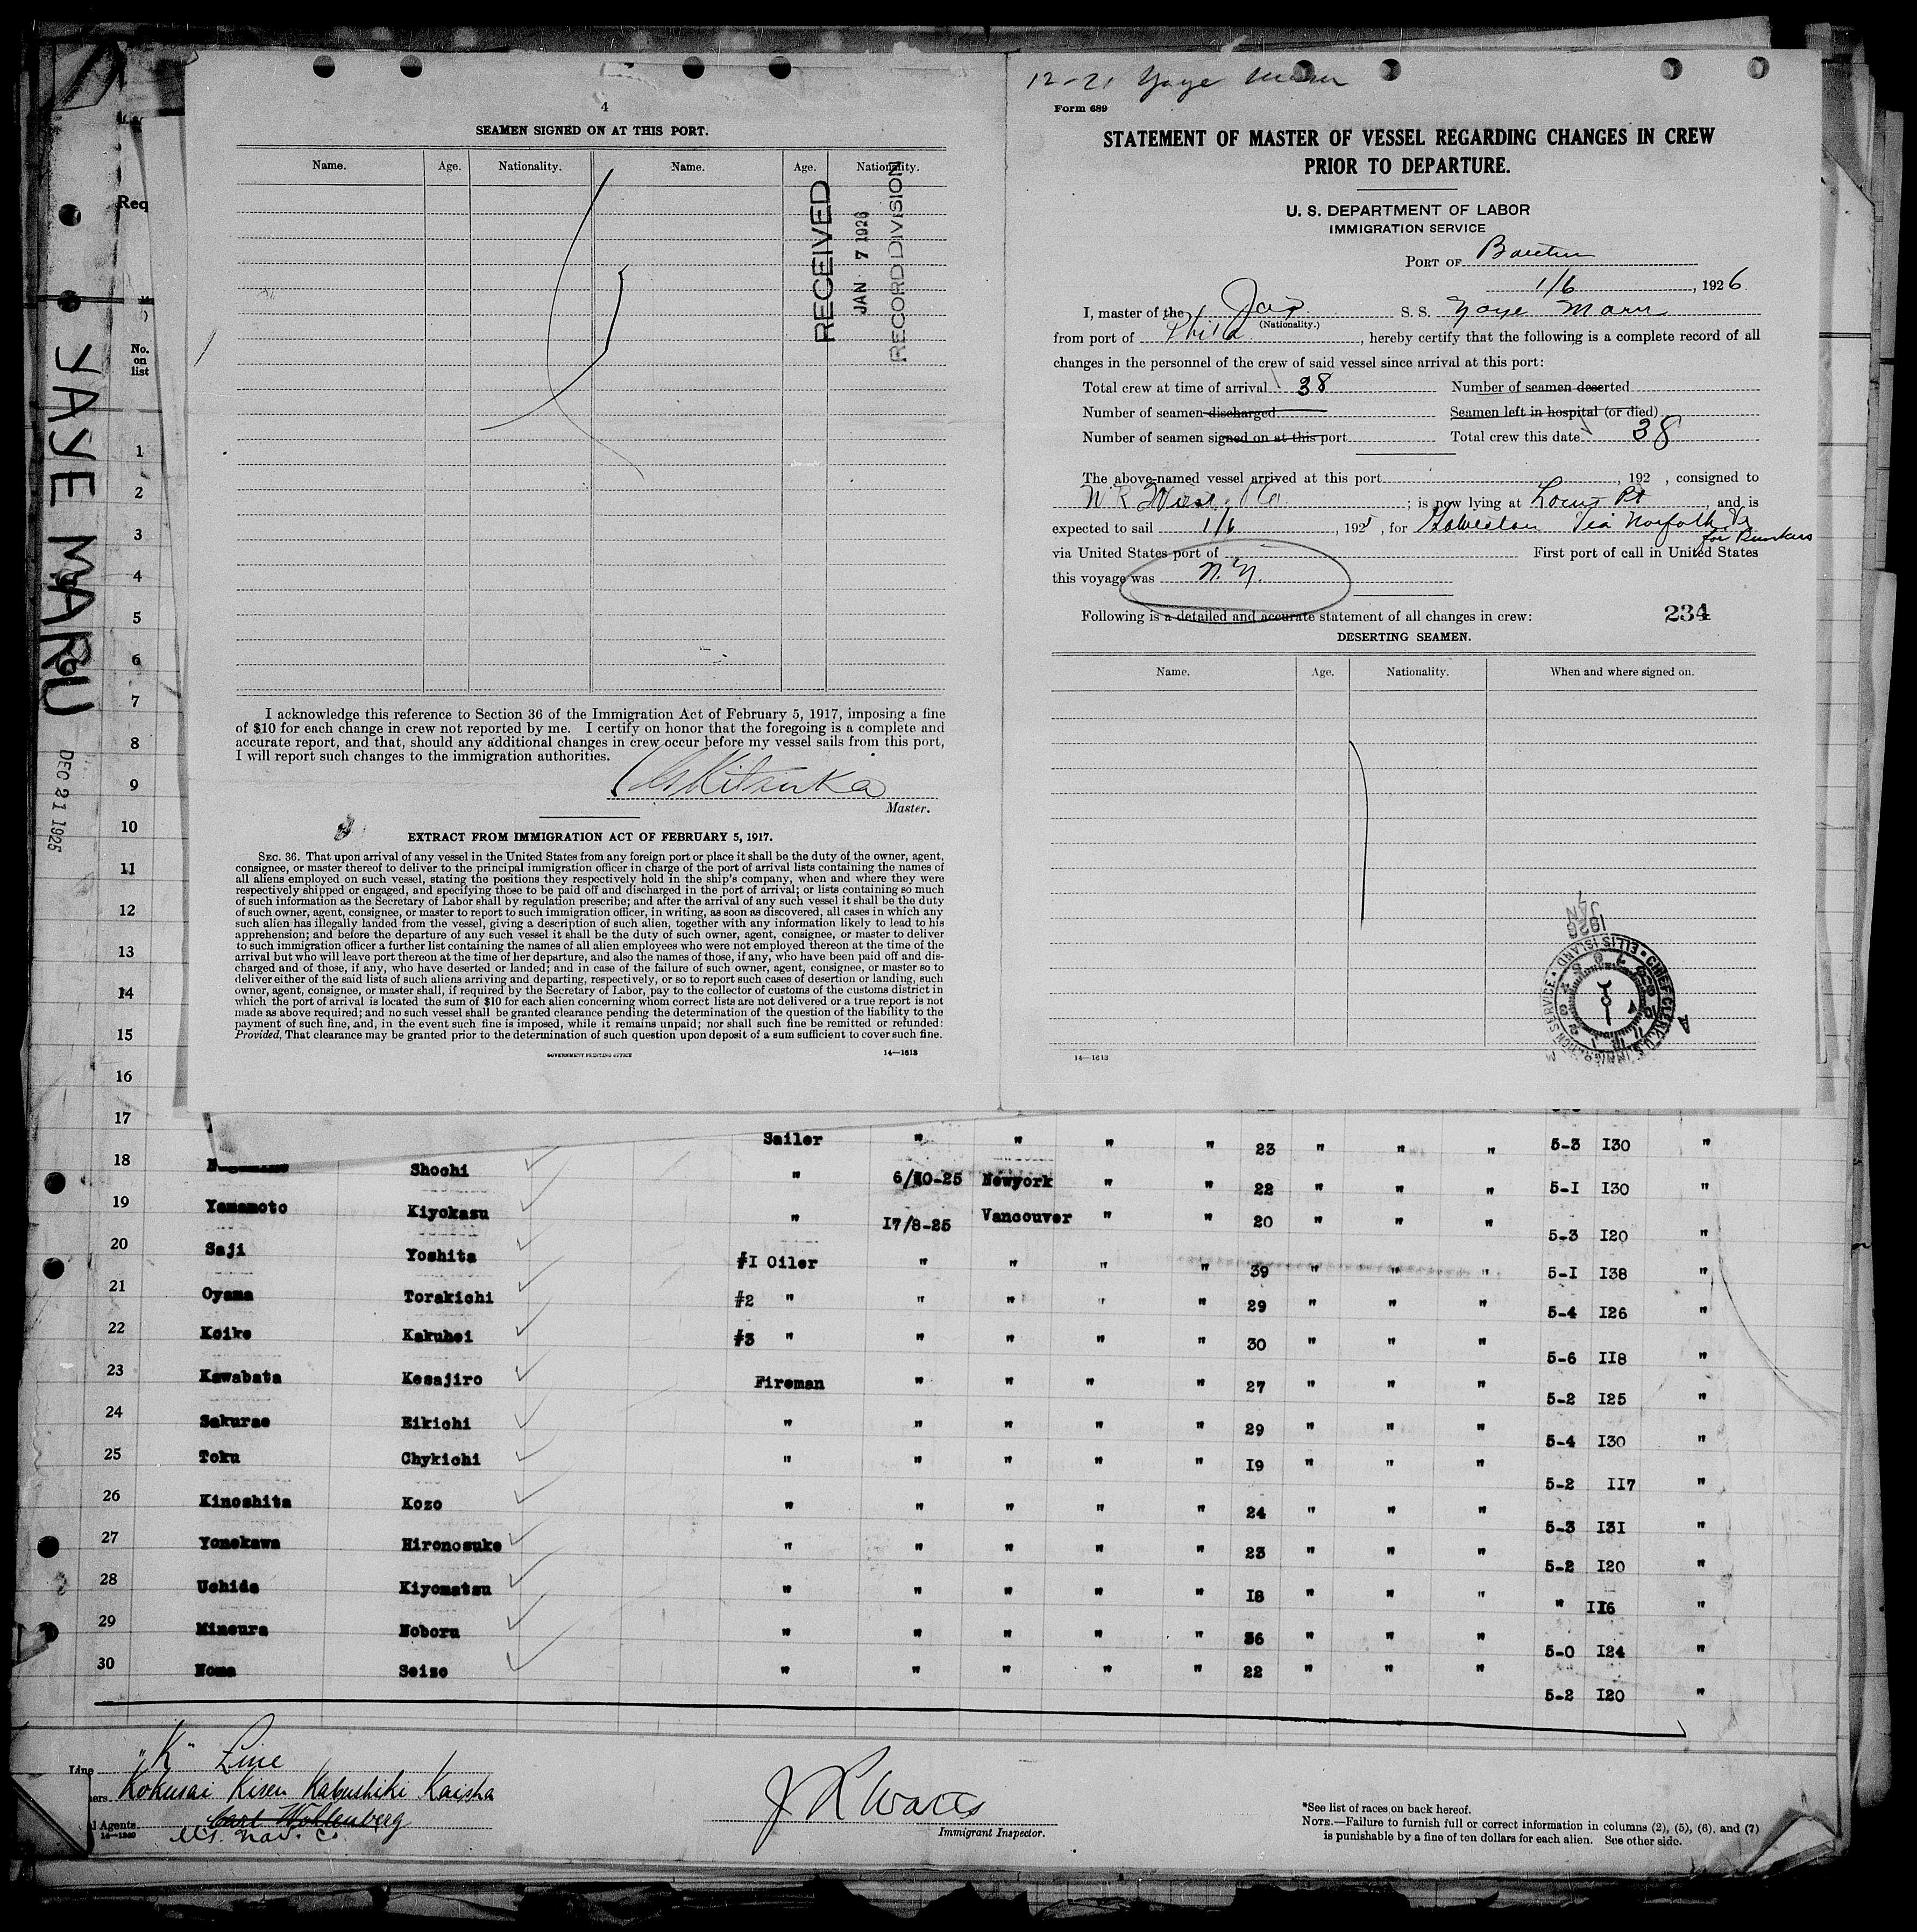 4
SEAMEN SIGNED ON AT THIS PORT.
Name. Age. Nationality. Name. Age. Nationality.
RECEIVED
JAN 7 1926
RECORD DIVISION
I acknowledge this reference to Section 36 of the Immigration Act of February 5, 1917, imposing a fine
of $10 for each change in crew not reported by me. I certify on honor that the foregoing is a complete and
accurate report, and that, should any additional changes in crew occur before my vessel sails from this port,
I will report such changes to the immigration authorities.
Kitsuka
Master.
EXTRACT FROM IMMIGRATION ACT OF FEBRUARY 5, 1917.
SEC. 36. That upon arrival of any vessel in the United States from any foreign port or place it shall be the duty of the owner, agent,
consignee, or master thereof to deliver to the principal immigration officer in charge of the port of arrival lists containing the names of
all aliens employed on such vessel, stating the positions they respectively hold in the ship's company, when and where they were
respectively shipped or engaged, and specifying those to be paid off and discharged in the port of arrival; or lists containing so much
of such information as the Secretary of Labor shall by regulation prescribe; and after the arrival of any such vessel it shall be the duty
of such owner, agent, consignee, or master to report to such immigration officer, in writing, as soon as discovered, all cases in which any
such alien has illegally landed from the vessel, giving a description of such alien, together with any information likely to lead to his
apprehension; and before the departure of any such vessel it shall be the duty of such owner, agent, consignee, or master to deliver
to such immigration officer a further list containing the names of all alien employees who were not employed thereon at the time of the
arrival but who will leave port thereon at the time of her departure, and also the names of those, if any, who have been paid off and dis-
charged and of those, if any, who have deserted or landed; and in case of the failure of such owner, agent, consignee, or master so to
deliver either of the said lists of such aliens arriving and departing, respectively, or so to report such cases of desertion or landing, such
owner, agent, consignee, or master shall, if required by the Secretary of Labor, pay to the collector of customs of the customs district in
which the port of arrival is located the sum of $10 for each alien concerning whom correct lists are not delivered or a true report is not
made as above required; and no such vessel shall be granted clearance pending the determination of the question of the liability to the
payment of such fine, and, in the event such fine is imposed, while it remains unpaid; nor shall such fine be remitted or refunded:
Provided, That clearance may be granted prior to the determination of such question upon deposit of a sum sufficient to cover such fine.
GOVERNMENT PRINTING OFFICE 14—1613
12-21 Yaye Maru
Form 689
STATEMENT OF MASTER OF VESSEL REGARDING CHANGES IN CREW
PRIOR TO DEPARTURE.
U. S. DEPARTMENT OF LABOR
IMMIGRATION SERVICE
PORT OF
1/6, 1926
I, master of the Jap S. S. Yaye Maru
(Nationality.)
from port of Phila, hereby certify that the following is a complete record of all
changes in the personnel of the crew of said vessel since arrival at this port:
Total crew at time of arrival 38 Number of seamen deserted
Number of seamen discharged Seamen left in hospital (or died)
Number of seamen signed on at this port Total crew this date 38
The above-named vessel arrived at this port , 192 , consigned to
; is now lying at Locust Pt and is
expected to sail 1/6, 192 , for Galveston via Norfolk Va
for Bunkers
via United States port of First port of call in United States
this voyage was N.Y.
Following is a detailed and accurate statement of all changes in crew: 234
DESERTING SEAMEN.
Name. Age. Nationality. When and where signed on.
JAN 7 1926
CHIEF CLERK, U.S. IMMIGRATION SERVICE • ELLIS ISLAND
14—1613
Req
No.
on
list
YAYE MARU
DEC 21 1925
1
2
3
4
5
6
7
8
9
10
11
12
13
14
15
16
17 Sailer " " " " 23 " " " 5-3 130 "
18 Shochi " 6/10-25 Newyork " " 22 " " " 5-1 130 "
19 Yamamoto Kiyokasu " 17/8-25 Vancouver " " 20 " " " 5-3 120 "
20 Saji Yoshita #1 Oiler " " " " 39 " " " 5-1 138 "
21 Oyama Torakichi #2 " " " " " 29 " " " 5-4 126 "
22 Koike Kakuhei #3 " " " " " 30 " " " 5-6 118 "
23 Kawabata Kesajiro Fireman " " " " 27 " " " 5-2 125 "
24 Sakurae Eikichi " " " " " 29 " " " 5-4 130 "
25 Toku Chykichi " " " " " 19 " " " 5-2 117 "
26 Kinoshita Kozo " " " " " 24 " " " 5-3 131 "
27 Yonekawa Hironosuke " " " " " 23 " " " 5-2 120 "
28 Uchida Kiyomatsu " " " " " 18 " " " " 116 "
29 Mineura Noboru " " " " " 36 " " " 5-0 124 "
30 Noma Seizo " " " " " 22 " " " 5-2 120 "
Line "K" Line
ners Kokusai Kisen Kabushiki Kaisha
l Agents Carl Wohlenberg
14—1240
J R Watts
Immigrant Inspector.
*See list of races on back hereof.
NOTE.—Failure to furnish full or correct information in columns (2), (5), (6), and (7)
is punishable by a fine of ten dollars for each alien. See other side.